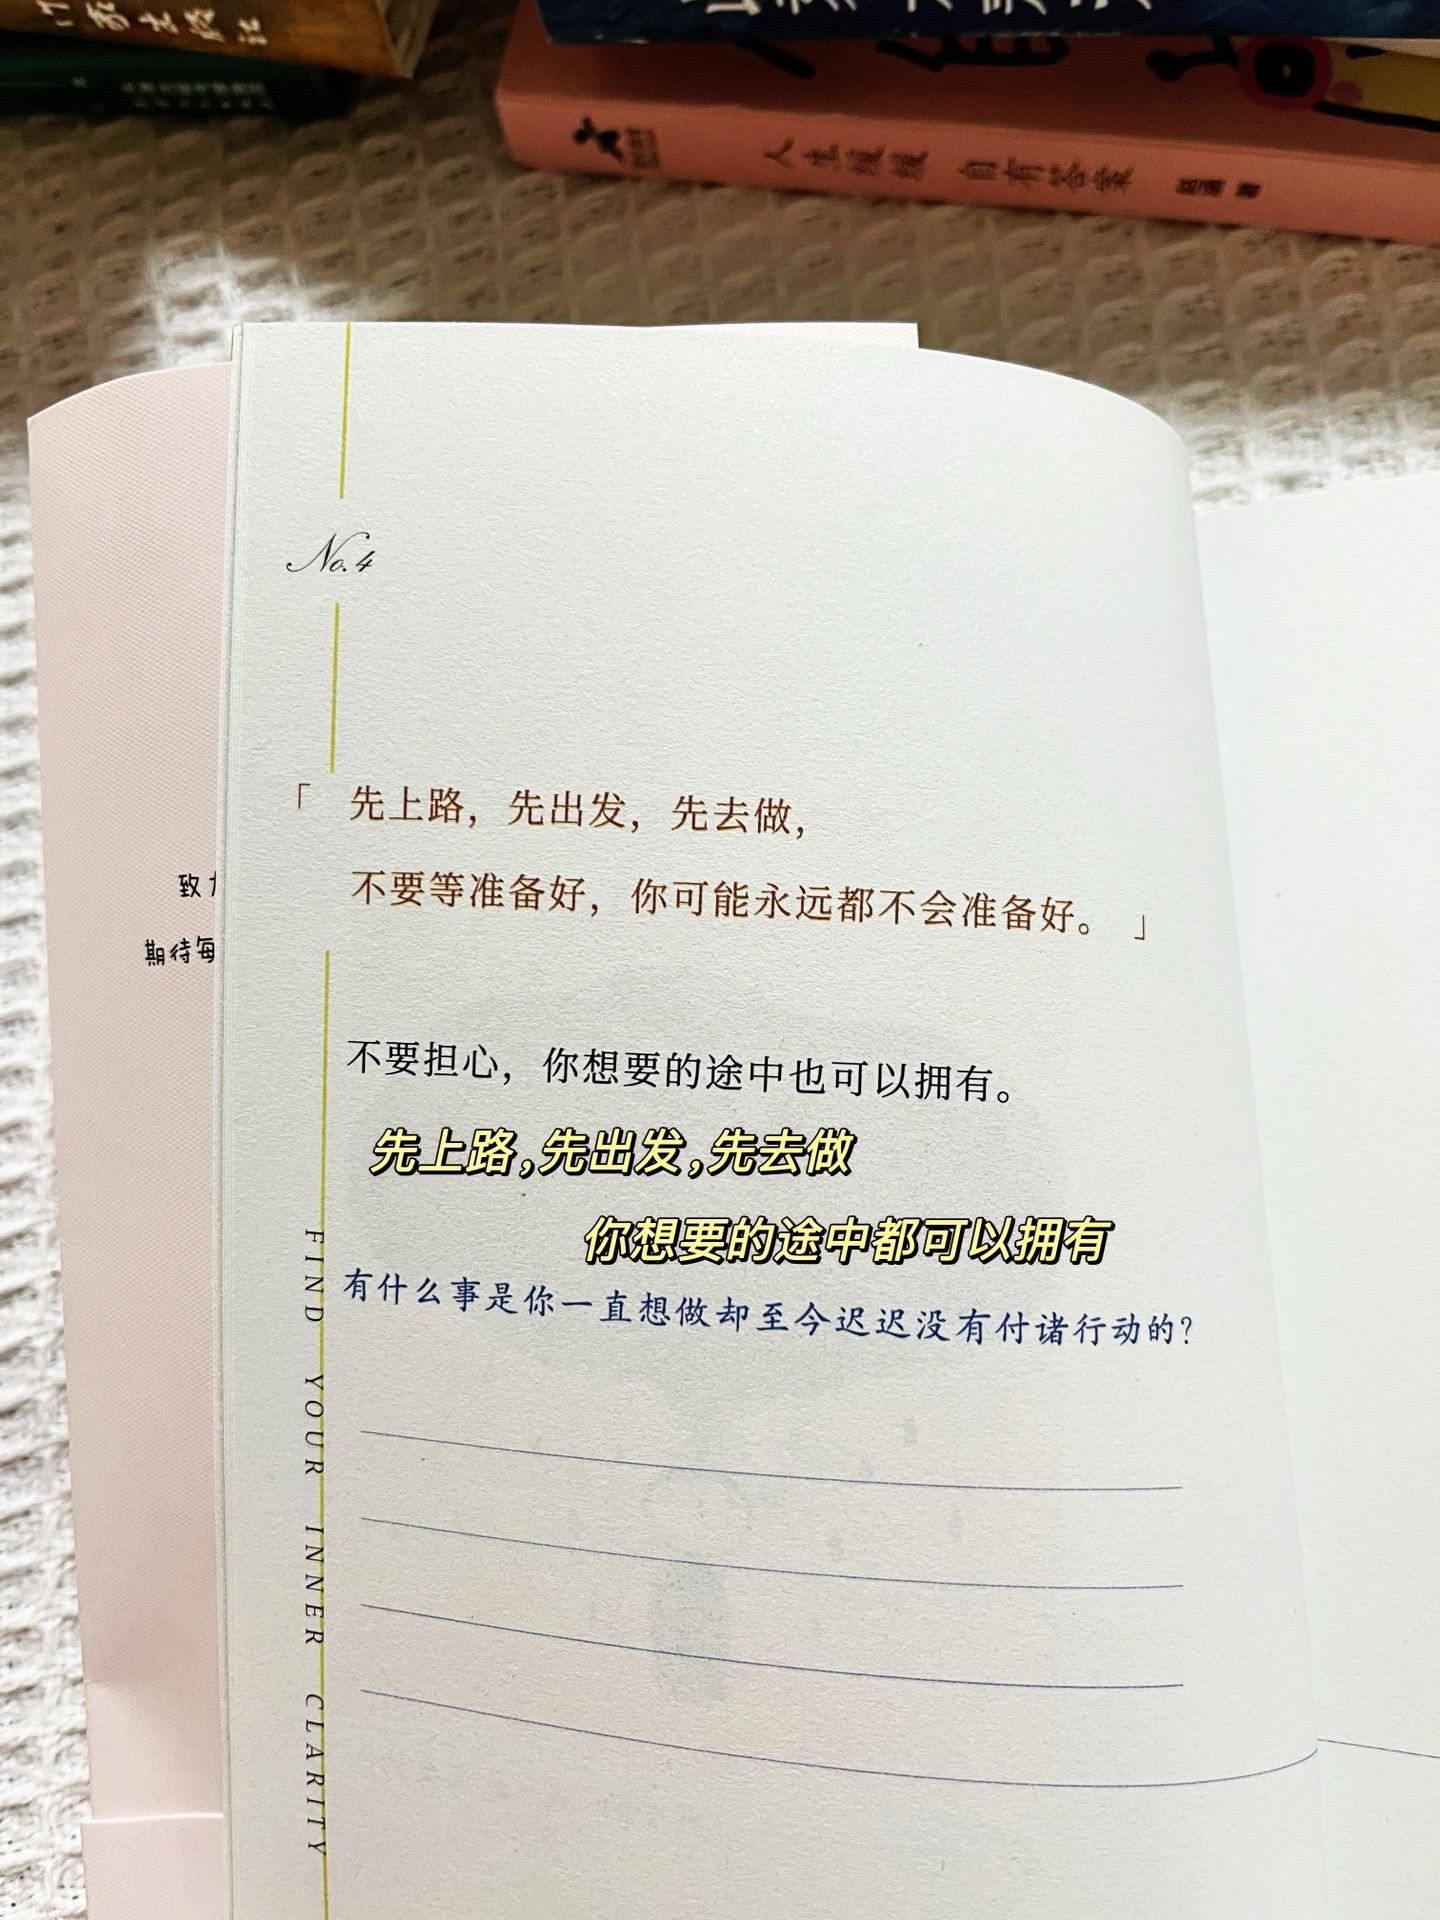 人生缓缓 自有答案
No.4
「 先上路，先出发，先去做，
不要等准备好，你可能永远都不会准备好。 」
致
期待每
不要担心，你想要的途中也可以拥有。
先上路,先出发,先去做
你想要的途中都可以拥有
有什么事是你一直想做却至今迟迟没有付诸行动的？
FIND YOUR INNER CLARITY